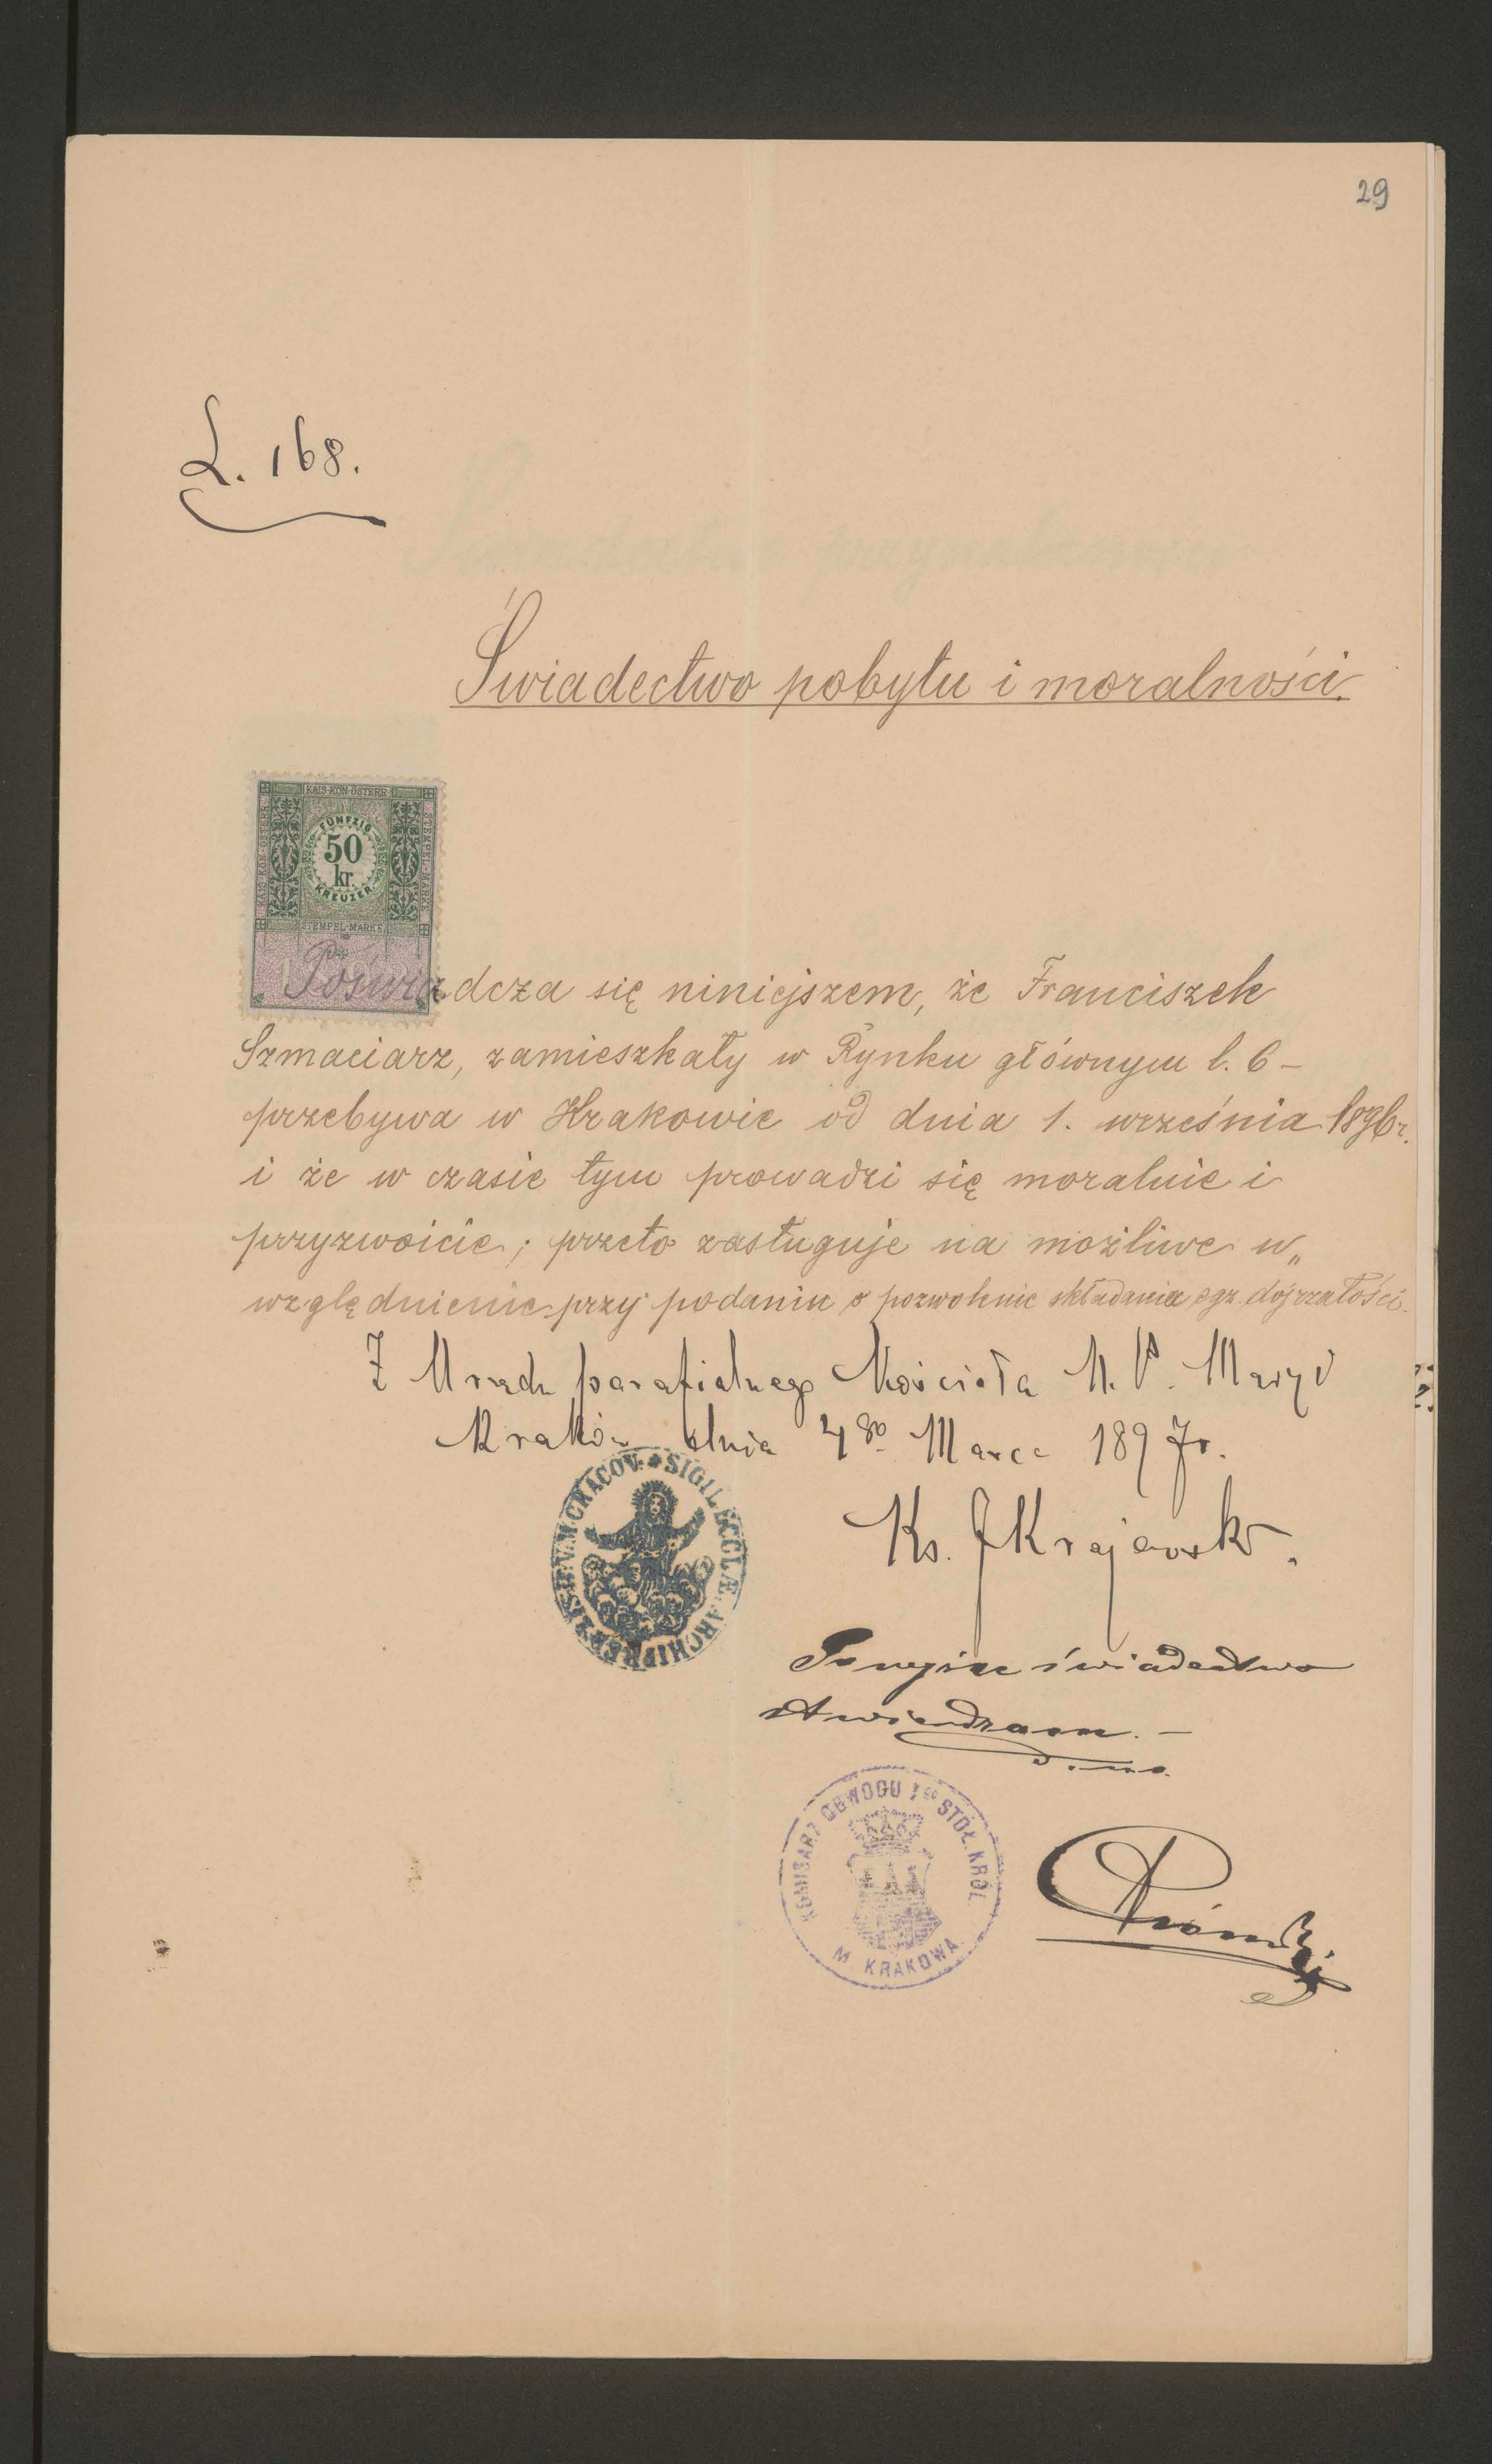 29
L. 168.
Świadectwo pobytu i moralności.
KAIS·KÖN·ÖSTERR·
STEMPEL·MARKE
FÜNFZIG
50
kr.
KREUZER
STEMPEL-MARKE
Poświadcza się niniejszem, że Franciszek
Szmaciarz, zamieszkały w Rynku głównym l. 6 –
przebywa w Krakowie od dnia 1. września 1896 r.
i że w czasie tym prowadzi się moralnie i
przyzwoicie; przeto zasługuje na możliwe u„
względnienie przy podaniu o pozwolenie składania egz. dojrzałości.
Z Urzędu parafialnego Kościoła N. P. Maryi
Kraków dnia 4go Marca 1897 r.
SIGIL. ECCLÆ. ARCHIPRESB. B. V. M. CRACOV.
Ks. J Krajewski.
Powyższe świadectwo
stwierdzam. –
KOMISARZ OBWODU I go STOŁ. KRÓL.
M. KRAKOWA